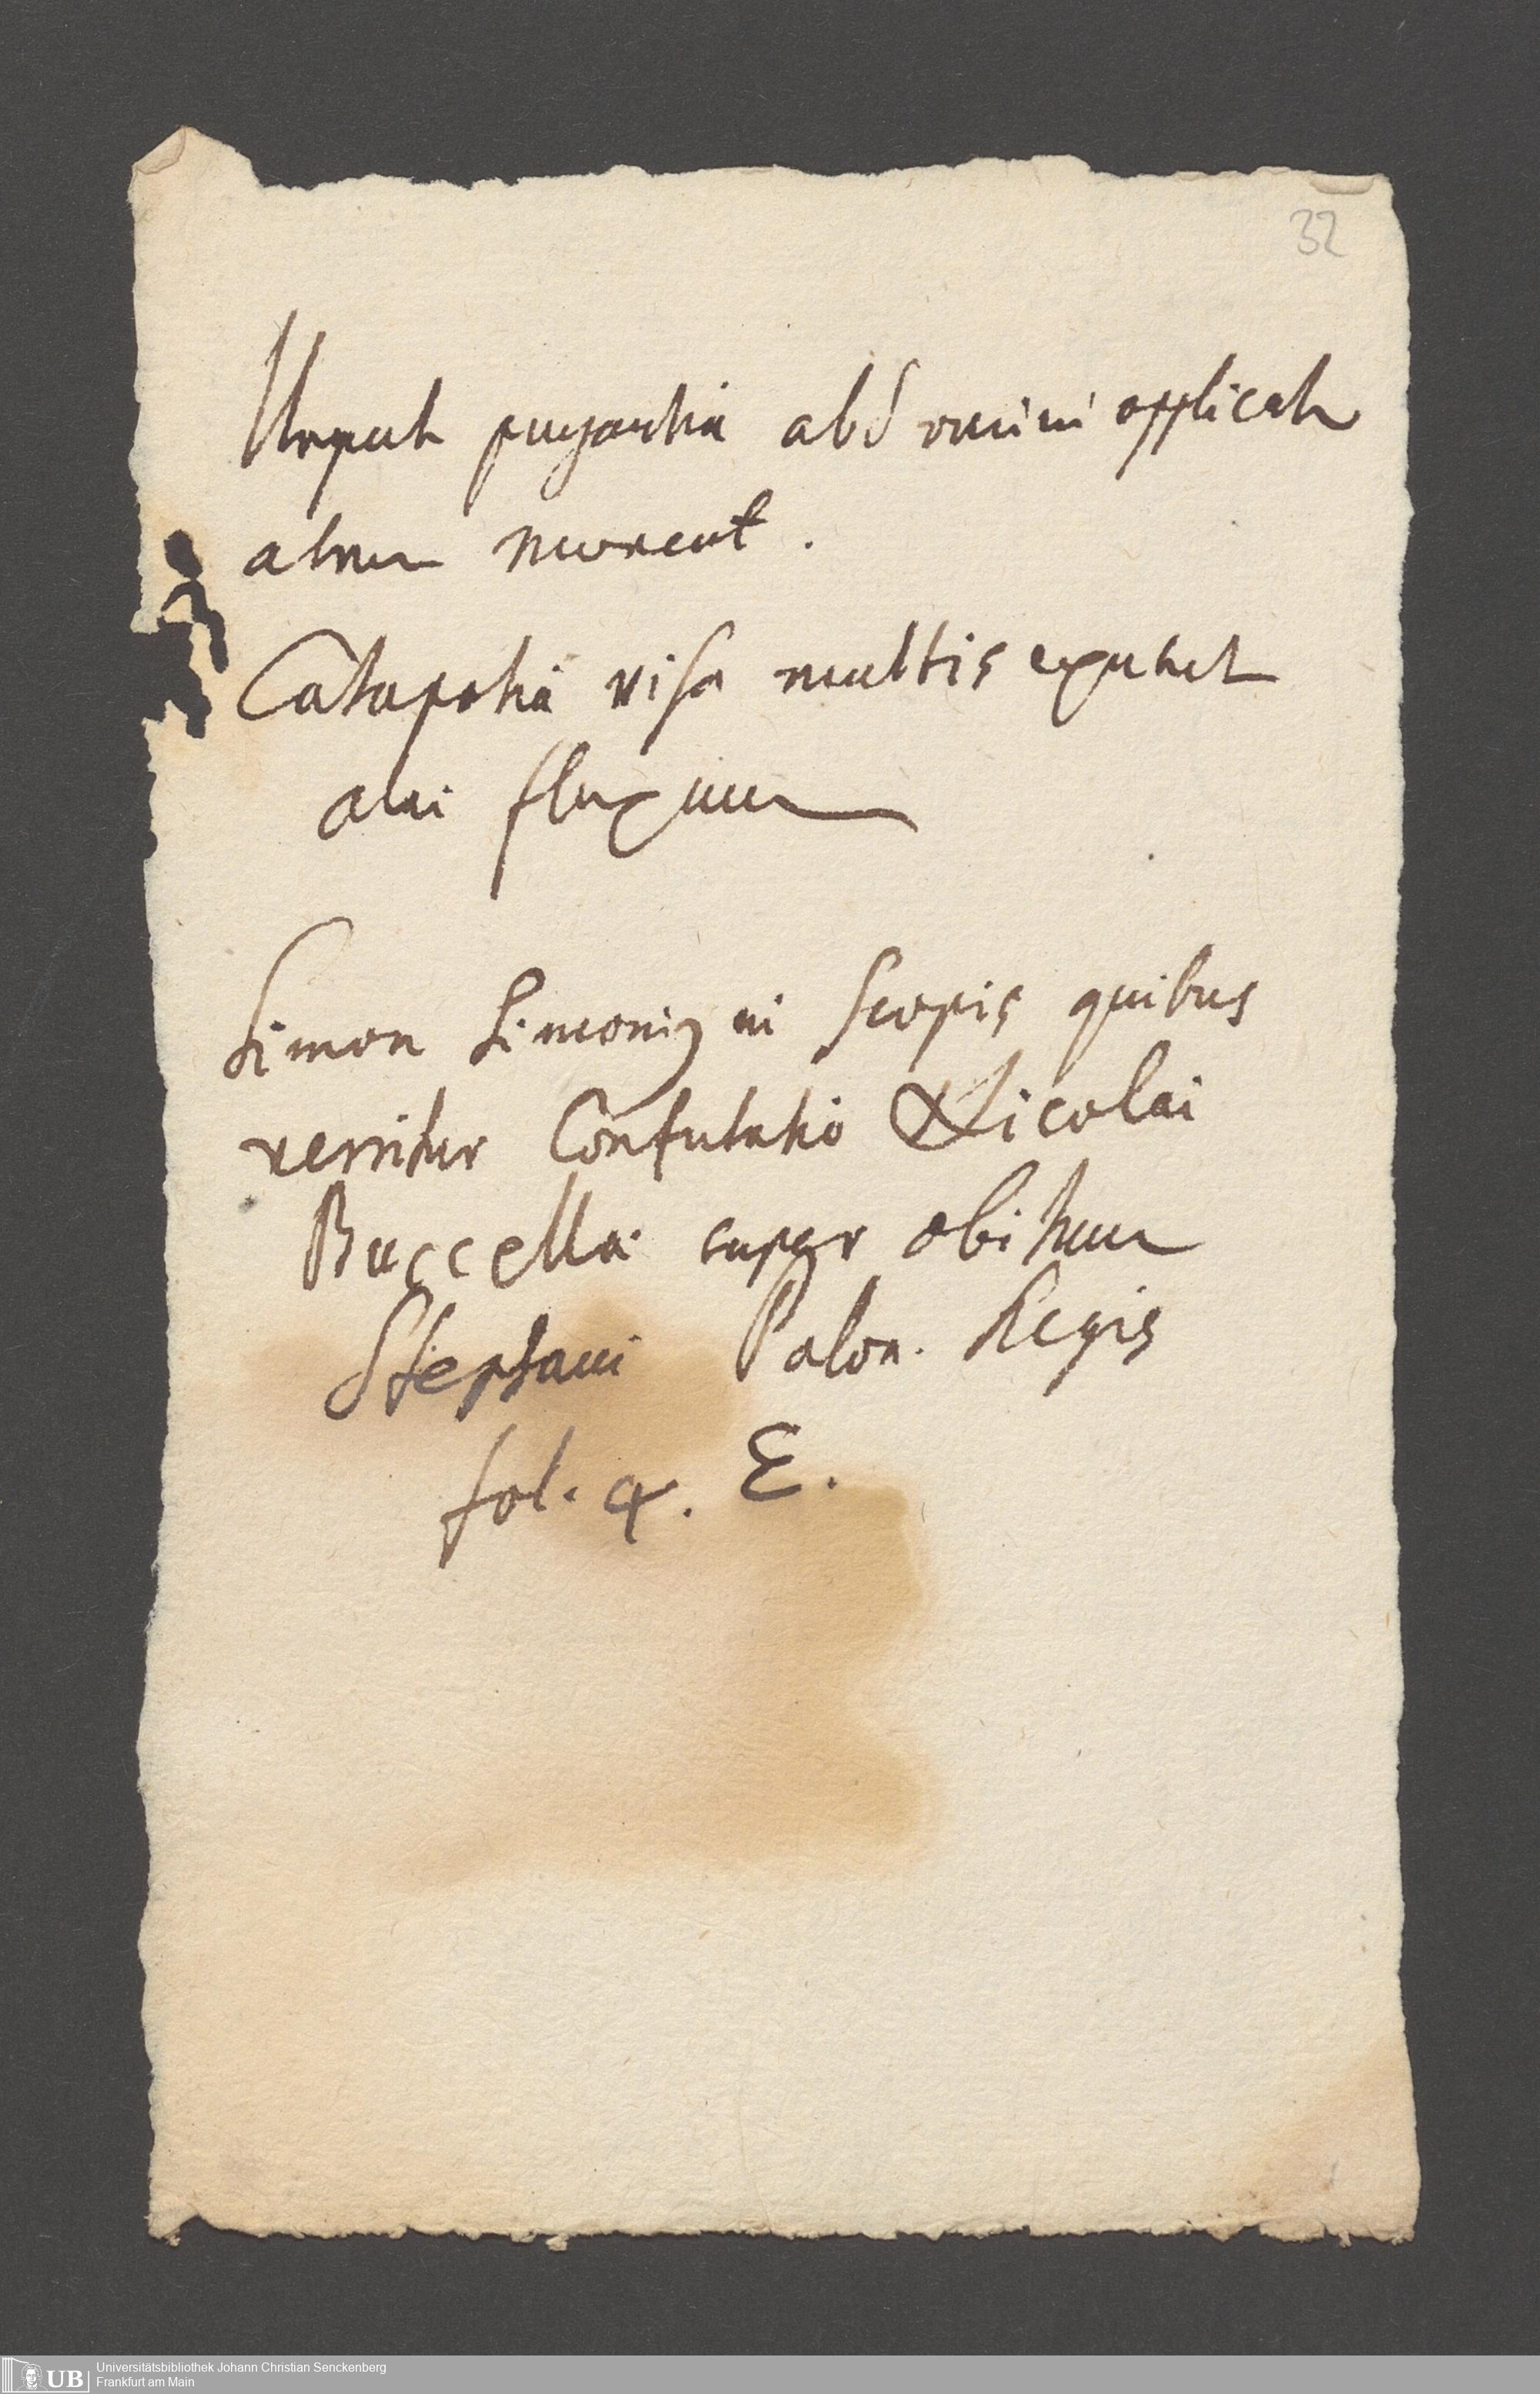 32
purgantia abdomini applicata
alvum movent.
Catapotia visa multis excitat
alvi fluxum
Simon Simonius in Scopis quibus
verritur Confutatio Nicolai
Buccella super obitum
Stephani Polon. Regis
fol. 4. E.
UB
Universitätsbibliothek Johann Christian Senckenberg
Frankfurt am Main